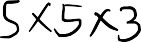 5×5×3